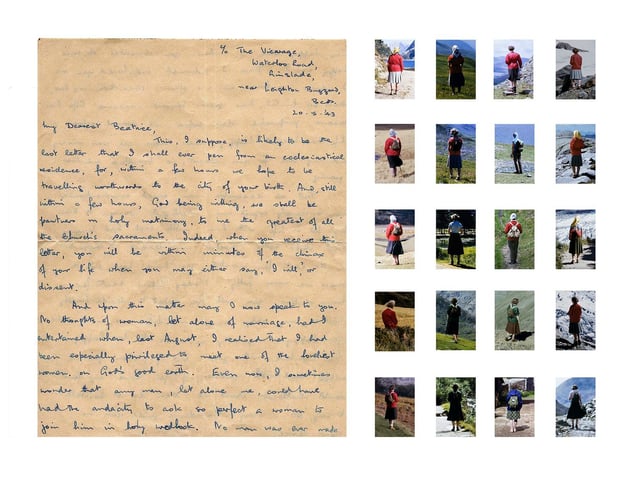 c/o The Vicarage,
Waterloo Road,
Linslade,
near Leighton Buzzard,
Beds.
20-5-43
My Dearest Beatrice,
This, I suppose, is likely to be the
last letter that I shall ever pen from an ecclesiastical
residence, for, within a few hours we hope to be
travelling northwards to the city of your birth. And, still
within a few hours, God being willing, we shall be
partners in holy matrimony, to me the greatest of all
the Church's sacraments. Indeed, when you receive this
letter, you will be within minutes of the climax
of your life when you may either say, I will, or
dissent.
And upon this matter may I now speak to you.
No thoughts of woman, let alone of marriage, had I
entertained when, last August, I realised that I had
been especially privileged to meet one of the loveliest
women on God's good earth. Even now, I sometimes
wonder that any man, let alone me, could have
had the audacity to ask so perfect a woman to
join him in holy wedlock. No man was ever made